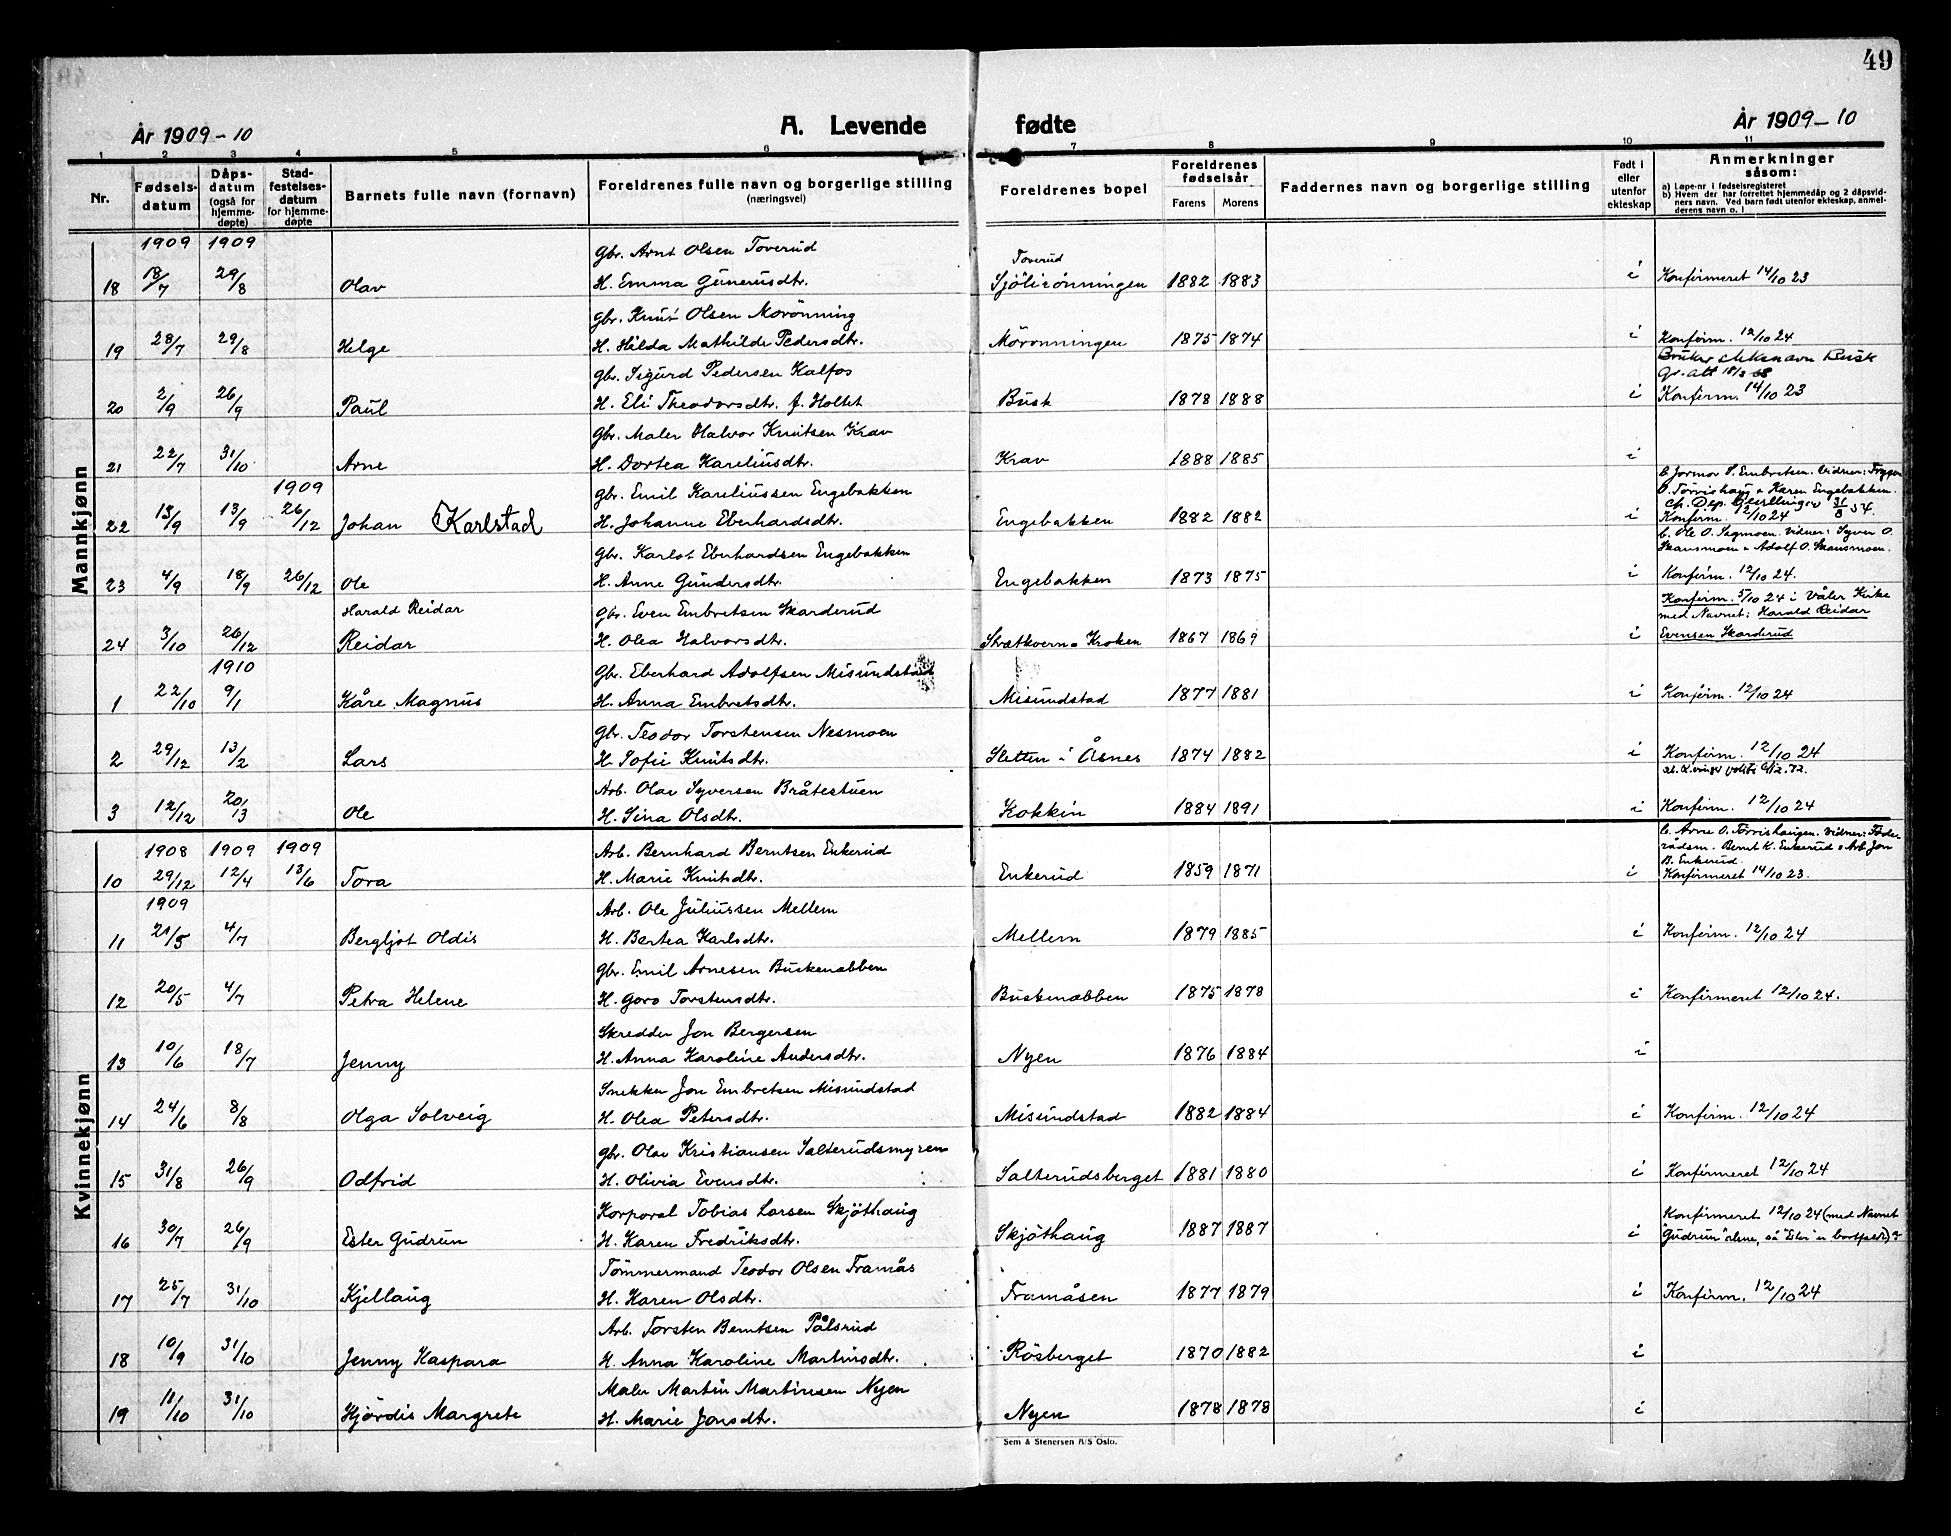 49
År 1909-10
A. Levende fødte
År 1909-10
1 2 3 4 5 6 7 8 9 10 11
Nr.
Fødsels-
datum
Dåps-
datum
(også for
hjemme-
døpte)
Stad-
festelses-
datum
for hjemme-
døpte
Barnets fulle navn (fornavn)
Foreldrenes fulle navn og borgerlige stilling
(næringsvei)
Foreldrenes bopel
Foreldrenes
fødselsår
Farens Morens
Faddernes navn og borgerlige stilling
Født i
eller
utenfor
ekteskap
Anmerkninger
såsom:
a) Løpe-nr i fødselsregisteret
b) Hvem der har forrettet hjemmedåp og 2 dåpsvid-
ners navn. Ved barn født utenfor ekteskap, anmel-
derens navn o. l
Mannkjønn
1909 1909 Gbr. Arnt Olsen Toverud Toverud
18 18/7 29/8 Olav H. Emma Gunerusdtr. Sjölirönningen 1882 1883 i Konfirmeret 14/10 23
Gbr. Knut Olsen Morönning
19 28/7 29/8 Helge H. Hilda Mathilde Pedersdtr. Mörönningen 1875 1874 i Konfirm. 12/10 24
Gbr. Sigurd Pedersen Kalfos Bruker slektsnavn Busk
Gr. att 18/3 68
20 2/9 26/9 Paul H. Eli Theodorsdtr. f. Holtet Busk 1878 1888 i Konfirm. 14/10 23
Gbr. Maler Halvor Knutsen Krav
21 22/7 31/10 Arne H. Dortea Kareliusdtr. Krav 1888 1885 i
1909 Gbr. Emil Kareliussen Engebakken b. Jormor P. Embretsen. Vidner:
O. Torrishaug & Karen Engebakken.
22 13/9 13/9 26/12 Johan Karlstad H. Johanne Eberhardsdtr. Engebakken 1882 1882 i Konfirm. 12/10 24
Gbr. Karlot Eberhardsen Engebakken b. Ole O. Sagmoen. Vidner: Syver O.
Skansmoen & Adolf O. Skansmoen.
23 4/9 18/9 26/12 Ole H. Anne Gundersdtr. Engebakken 1873 1875 i Konfirm. 12/10 24.
Harald Reidar Gbr. Even Embretsen Skarderud Konfirm. 5/10 24 i Våler Kirke
med Navnet: Harald Reidar
24 3/10 26/12 Reidar H. Olea Halvorsdtr. Strætkvern Kroken 1867 1869 i Evensen Skarderud
1910 Gbr. Eberhard Adolfsen Misundstad
1 22/10 9/1 Kåre Magnus H. Anna Embretsdtr. Misundstad 1877 1881 i Konfirm. 12/10 24
Gbr. Teodor Torstensen Nesmoen
2 29/12 13/2 Lars H. Sofie Knutsdtr. Sletten i Åsnes 1874 1882 i Konfirm. 12/10 24
Arb. Olav Syversen Bråtestuen
3 12/12 20/3 Ole H. Sina Olsdtr. Kokkin 1884 1891 i Konfirm. 12/10 24
Kvinnekjønn
1908 1909 1909 Arb. Bernhard Berntsen Enkerud b. Arne O. Torrishaugen. Vidner: Føde-
rådsm. Bernt K. Enkerud & Arb. Jon
B. Enkerud.
10 29/12 12/4 13/6 Tora H. Marie Knutsdtr. Enkerud 1859 1871 i Konfirmeret 14/10 23.
1909 Arb. Ole Juliussen Mellem
11 21/5 4/7 Bergljot Oldis H. Bertea Karlsdtr. Mellem 1879 1885 i Konfirm. 12/10 24
Gbr. Emil Arnesen Buskenabben
12 20/5 4/7 Petra Helene H. Goro Torstensdtr. Buskenæbben 1875 1878 i Konfirmeret 12/10 24.
Skredder Jon Bergersen
13 10/6 18/7 Jenny H. Anna Karoline Andersdtr. Nyen 1876 1884 i
Snekker Jon Embretsen Misundstad
14 24/6 8/8 Olga Solveig H. Olea Petersdtr. Misundstad 1882 1884 i Konfirm. 12/10 24
Gbr. Olav Kristiansen Salterudsmyren
15 31/8 26/9 Odfrid H. Olivia Evensdtr. Salterudsberget 1881 1880 i Konfirmeret 12/10 24
Korporal Tobias Larsen Skjöthaug Konfirmeret 12/10 24 (med Navnet
16 30/7 26/9 Ester Gudrun H. Karen Fredriksdtr. Skjöthaug 1887 1887 i "Gudrun" alene, så "Ester" er bortfaldt)
Tömmermand Teodor Olsen Framås
17 25/7 31/10 Kjellaug H. Karen Olsdtr. Framåsen 1877 1879 i Konfirm. 12/10 24
Arb. Torsten Berntsen Pålsrud
18 10/9 31/10 Jenny Kaspara H. Anna Karoline Martinsdtr. Rösberget 1870 1882 i
Maler Martin Martinsen Nyen
19 11/10 31/10 Hjördis Margrete H. Marie Jonsdtr. Nyen 1878 1878 i
Sem & Stenersen A/S Oslo.